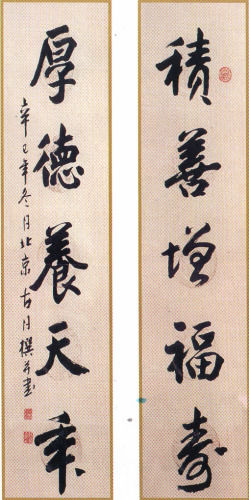 積善增福壽
厚德養天年
辛巳年冬月北京古月撰并書